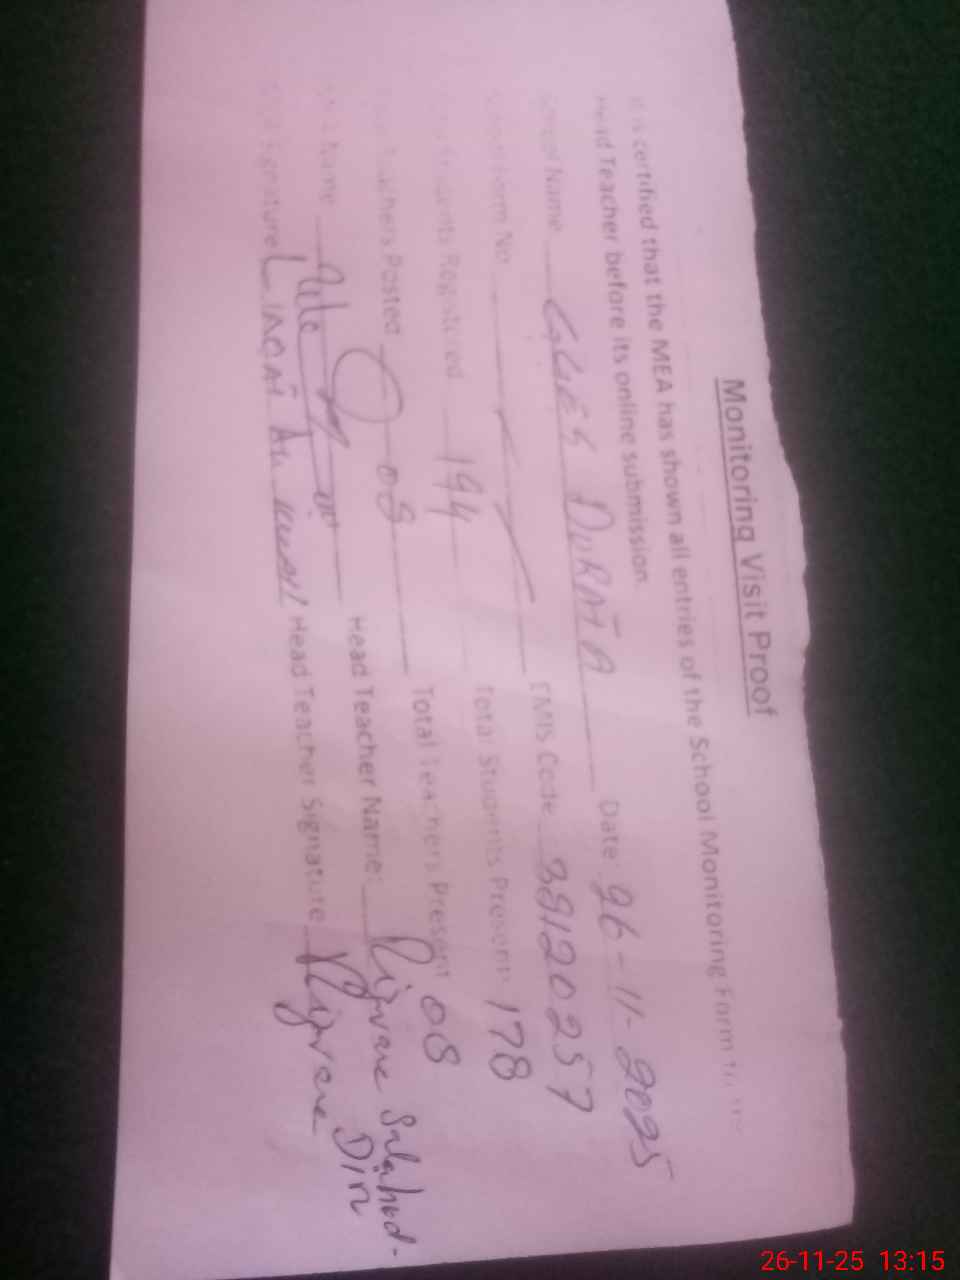 Monitoring Visit Proof
It is certified that the MEA has shown all entries of the School Monitoring Form to the
Head Teacher before its online submission
School Name GGES DURATA Date: 26-11-2025
Form No EMIS Code 38120257
Students Registered 194 Total Students Present 178
Teachers Posted 08 Total Teachers Present 08
Name Head Teacher Name: Rizwana Salahud-Din
Signature Head Teacher Signature Rizwana
26-11-25 13:15